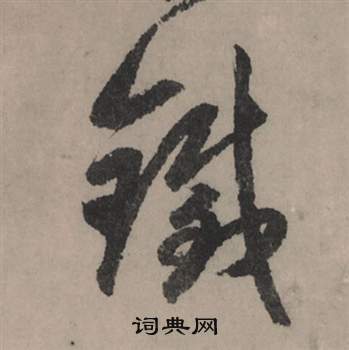 鐵
词典网